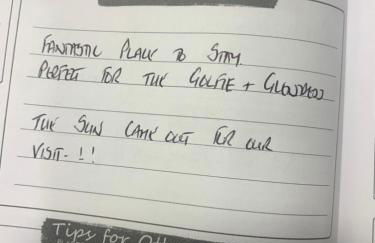 FANTASTIC PLACE TO STAY.
PERFECT FOR THE GOLFIE +
THE SUN CAME OUT FOR OUR
VISIT.!!
Tips for